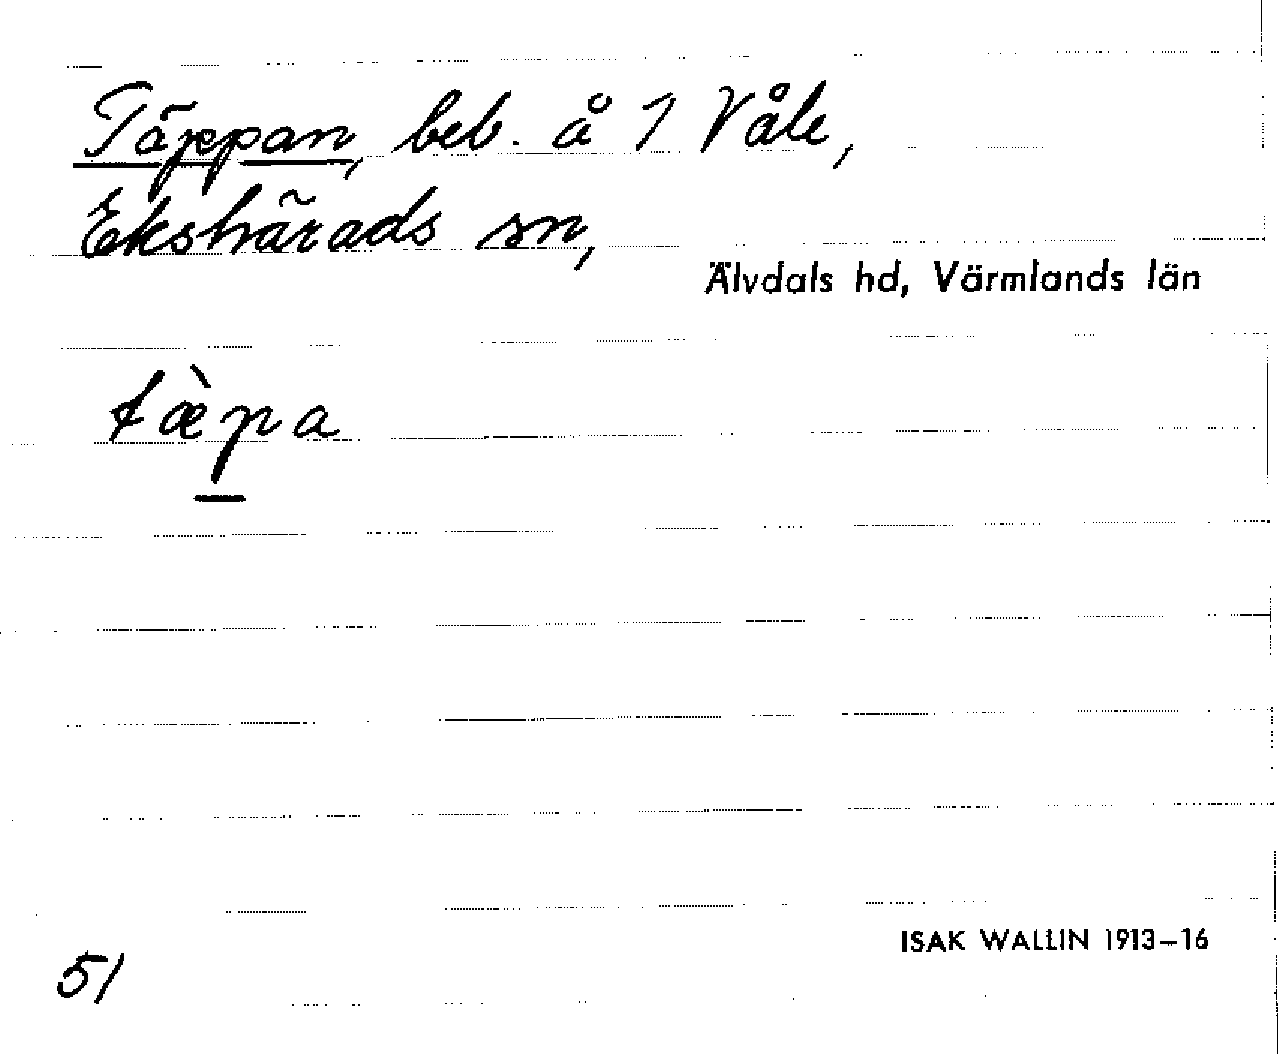 Täppan, beb. å 1 Våle,
Ekshärads sn,
Älvdals hd, Värmlands län
tæ̀pa
ISAK WALLIN 1913–16
51